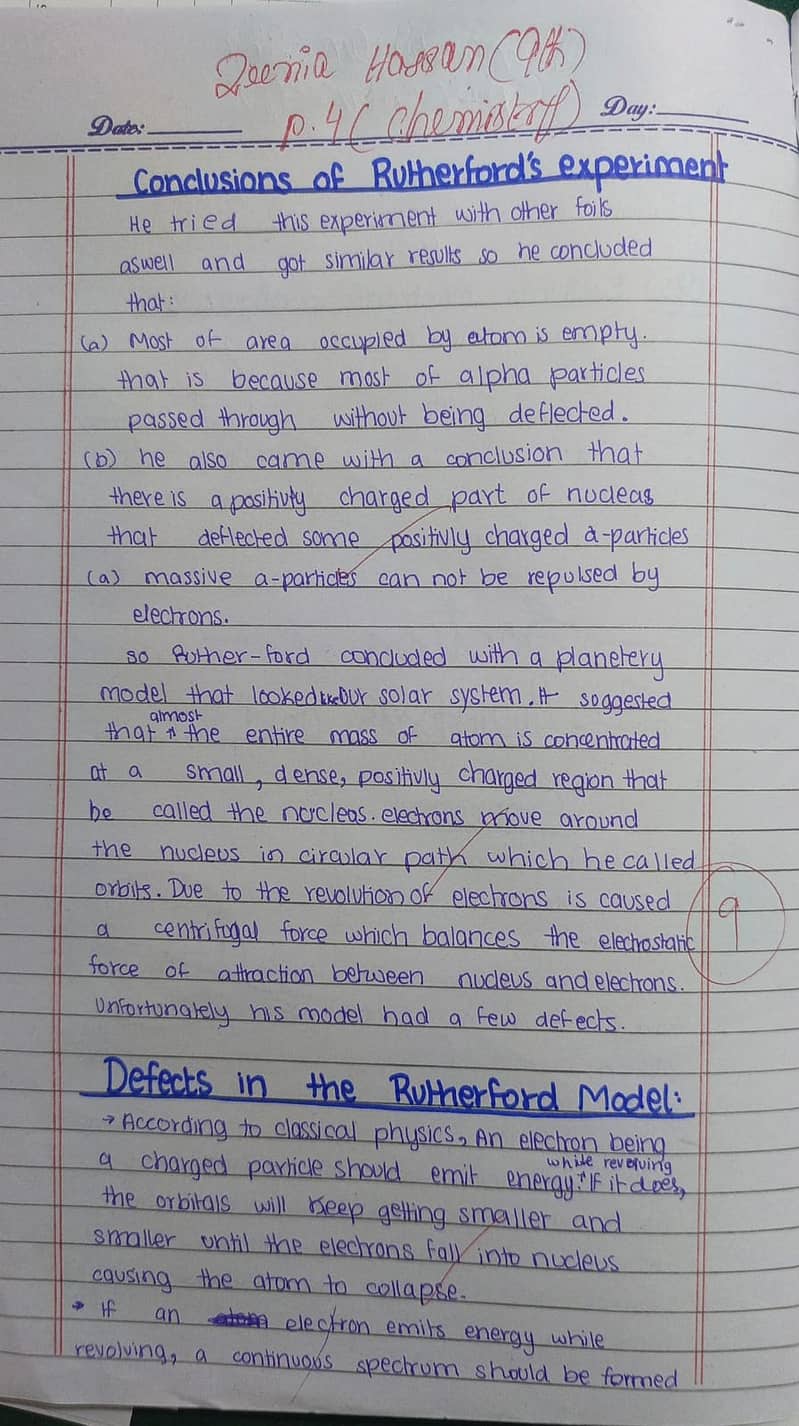 Zeenia Hassan (9th)
p.4 (Chemistry)
Date: Day:
Conclusions of Rutherford's experiment
He tried this experiment with other foils
aswell and got similar results so he concluded
that:
(a) Most of area occupied by atom is empty.
that is because most of alpha particles
passed through without being deflected.
(b) he also came with a conclusion that
there is a positivly charged part of nucleas
that deflected some positivly charged a-particles
(a) massive a-particles can not be repulsed by
electrons.
so Ruther-ford concluded with a planetery
model that looked like our solar system. It soggested
almost
that ^ the entire mass of atom is concentrated
at a small, dense, positivly charged region that
he called the nucleas. electrons move around
the nucleus in circular path which he called
orbits. Due to the revolution of electrons is caused
a centrifogal force which balances the electrostatic
9
force of attraction between nucleus and electrons.
Unfortunately his model had a few defects.
Defects in the Rutherford Model:
→ According to classical physics, An electron being
while revolving
a charged particle should emit energy ^. If it does,
the orbitals will keep getting smaller and
smaller until the electrons fall into nucleus
causing the atom to collapse.
→ If an electron emits energy while
revolving, a continuous spectrum should be formed